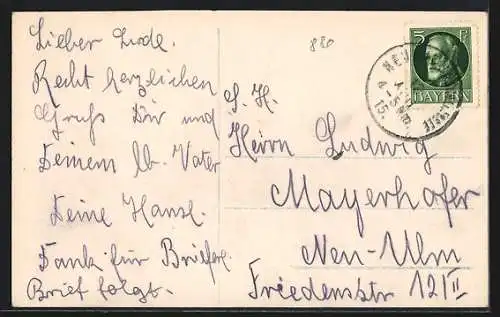 Lieber Lude.
Recht herzlichen
Gruß Dir und
Deinem lb. Vater
Deine Hansl.
Dank für Briefe.
Brief folgt.
880
5
BAYERN
4
15.
S. H.
Herrn Ludwig
Mayerhofer
Neu-Ulm
Friedensstr 12/II